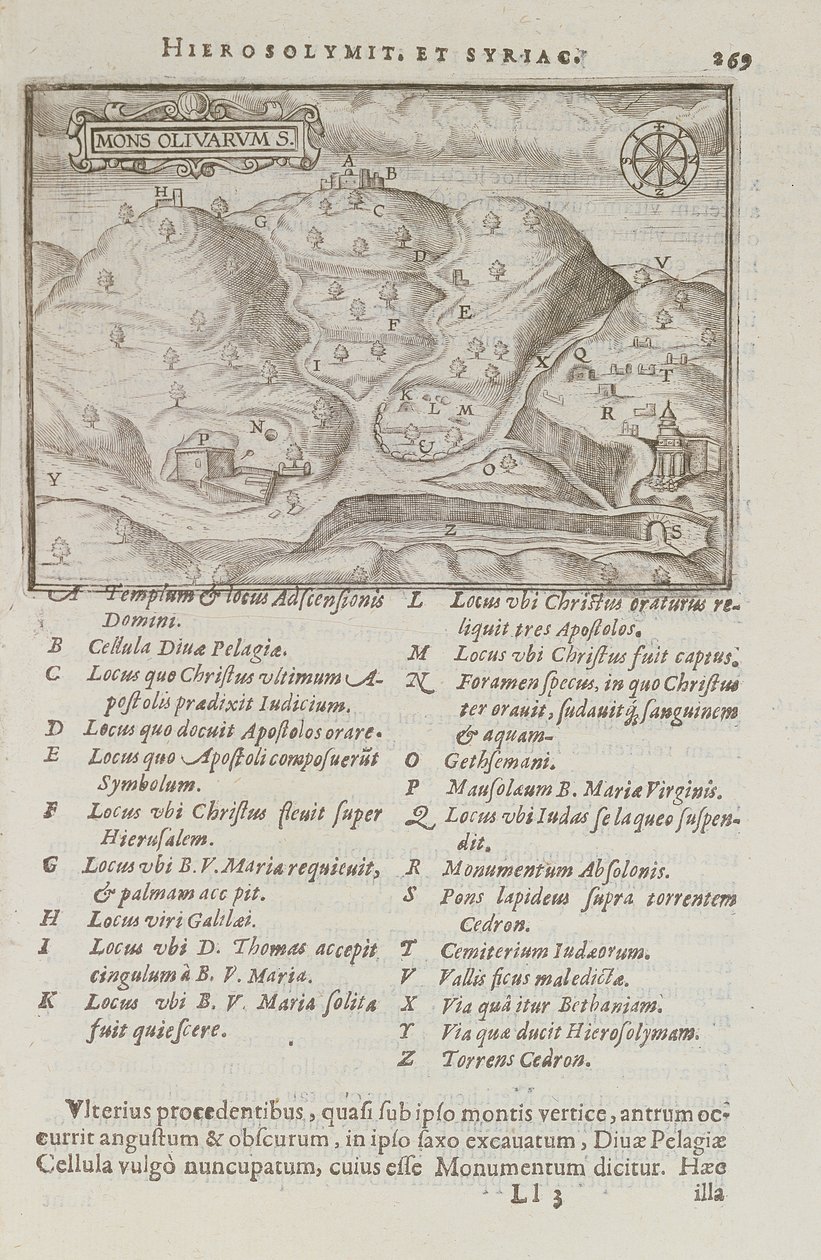 HIEROSOLYMIT. ET SYRIAC. 269
MONS OLIVARVM S.
A
B
H
C
G
D
V
L
E
F
X
Q
I
T
K
L
M
R
N
P
&
O
Y
Z
S
A Templum & locus Adſcenſionis
Domini.
B Cellula Diuæ Pelagiæ.
C Locus quo Chriſtus vltimum A-
poſtolis prædixit Iudicium.
D Locus quo docuit Apoſtolos orare.
E Locus quo Apoſtoli compoſuerūt
Symbolum.
F Locus vbi Chriſtus fleuit ſuper
Hieruſalem.
G Locus vbi B. V. Maria requieuit,
& palmam acc pit.
H Locus viri Galilæi.
I Locus vbi D. Thomas accepit
cingulum à B. V. Maria.
K Locus vbi B. V. Maria ſolita
fuit quieſcere.
L Locus vbi Chriſtus oraturus re-
liquit tres Apoſtolos.
M Locus vbi Chriſtus fuit captus.
N Foramen ſpecus, in quo Chriſtus
ter orauit, ſudauitq́; ſanguinem
& aquam.
O Gethſemani.
P Mauſolæum B. Mariæ Virginis.
Q Locus vbi Iudas ſe laqueo ſuſpen-
dit.
R Monumentum Abſolonis.
S Pons lapideus ſupra torrentem
Cedron.
T Cemiterium Iudæorum.
V Vallis ficus maledictæ.
X Via quâ itur Bethaniam.
Y Via quæ ducit Hieroſolymam.
Z Torrens Cedron.
Vlterius procedentibus, quaſi ſub ipſo montis vertice, antrum oc-
currit anguſtum & obſcurum, in ipſo ſaxo excauatum, Diuæ Pelagiæ
Cellula vulgò nuncupatum, cuius eſſe Monumentum dicitur. Hæc
Ll 3 illa